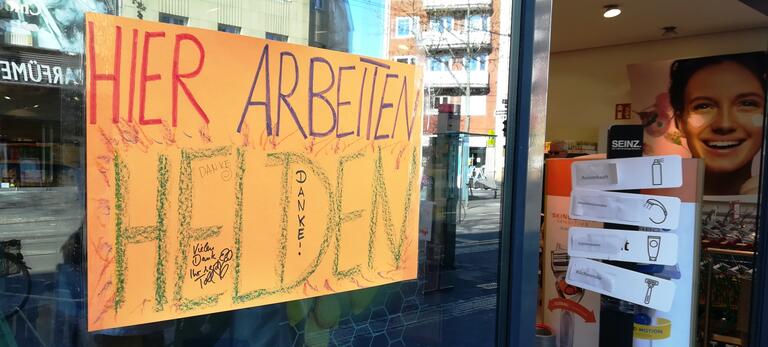 HIER ARBEITEN
HELDEN
DANKE
DANKE!
Vielen
Dank
Ihr seid
Toll
ARFÜME
SEINZ.